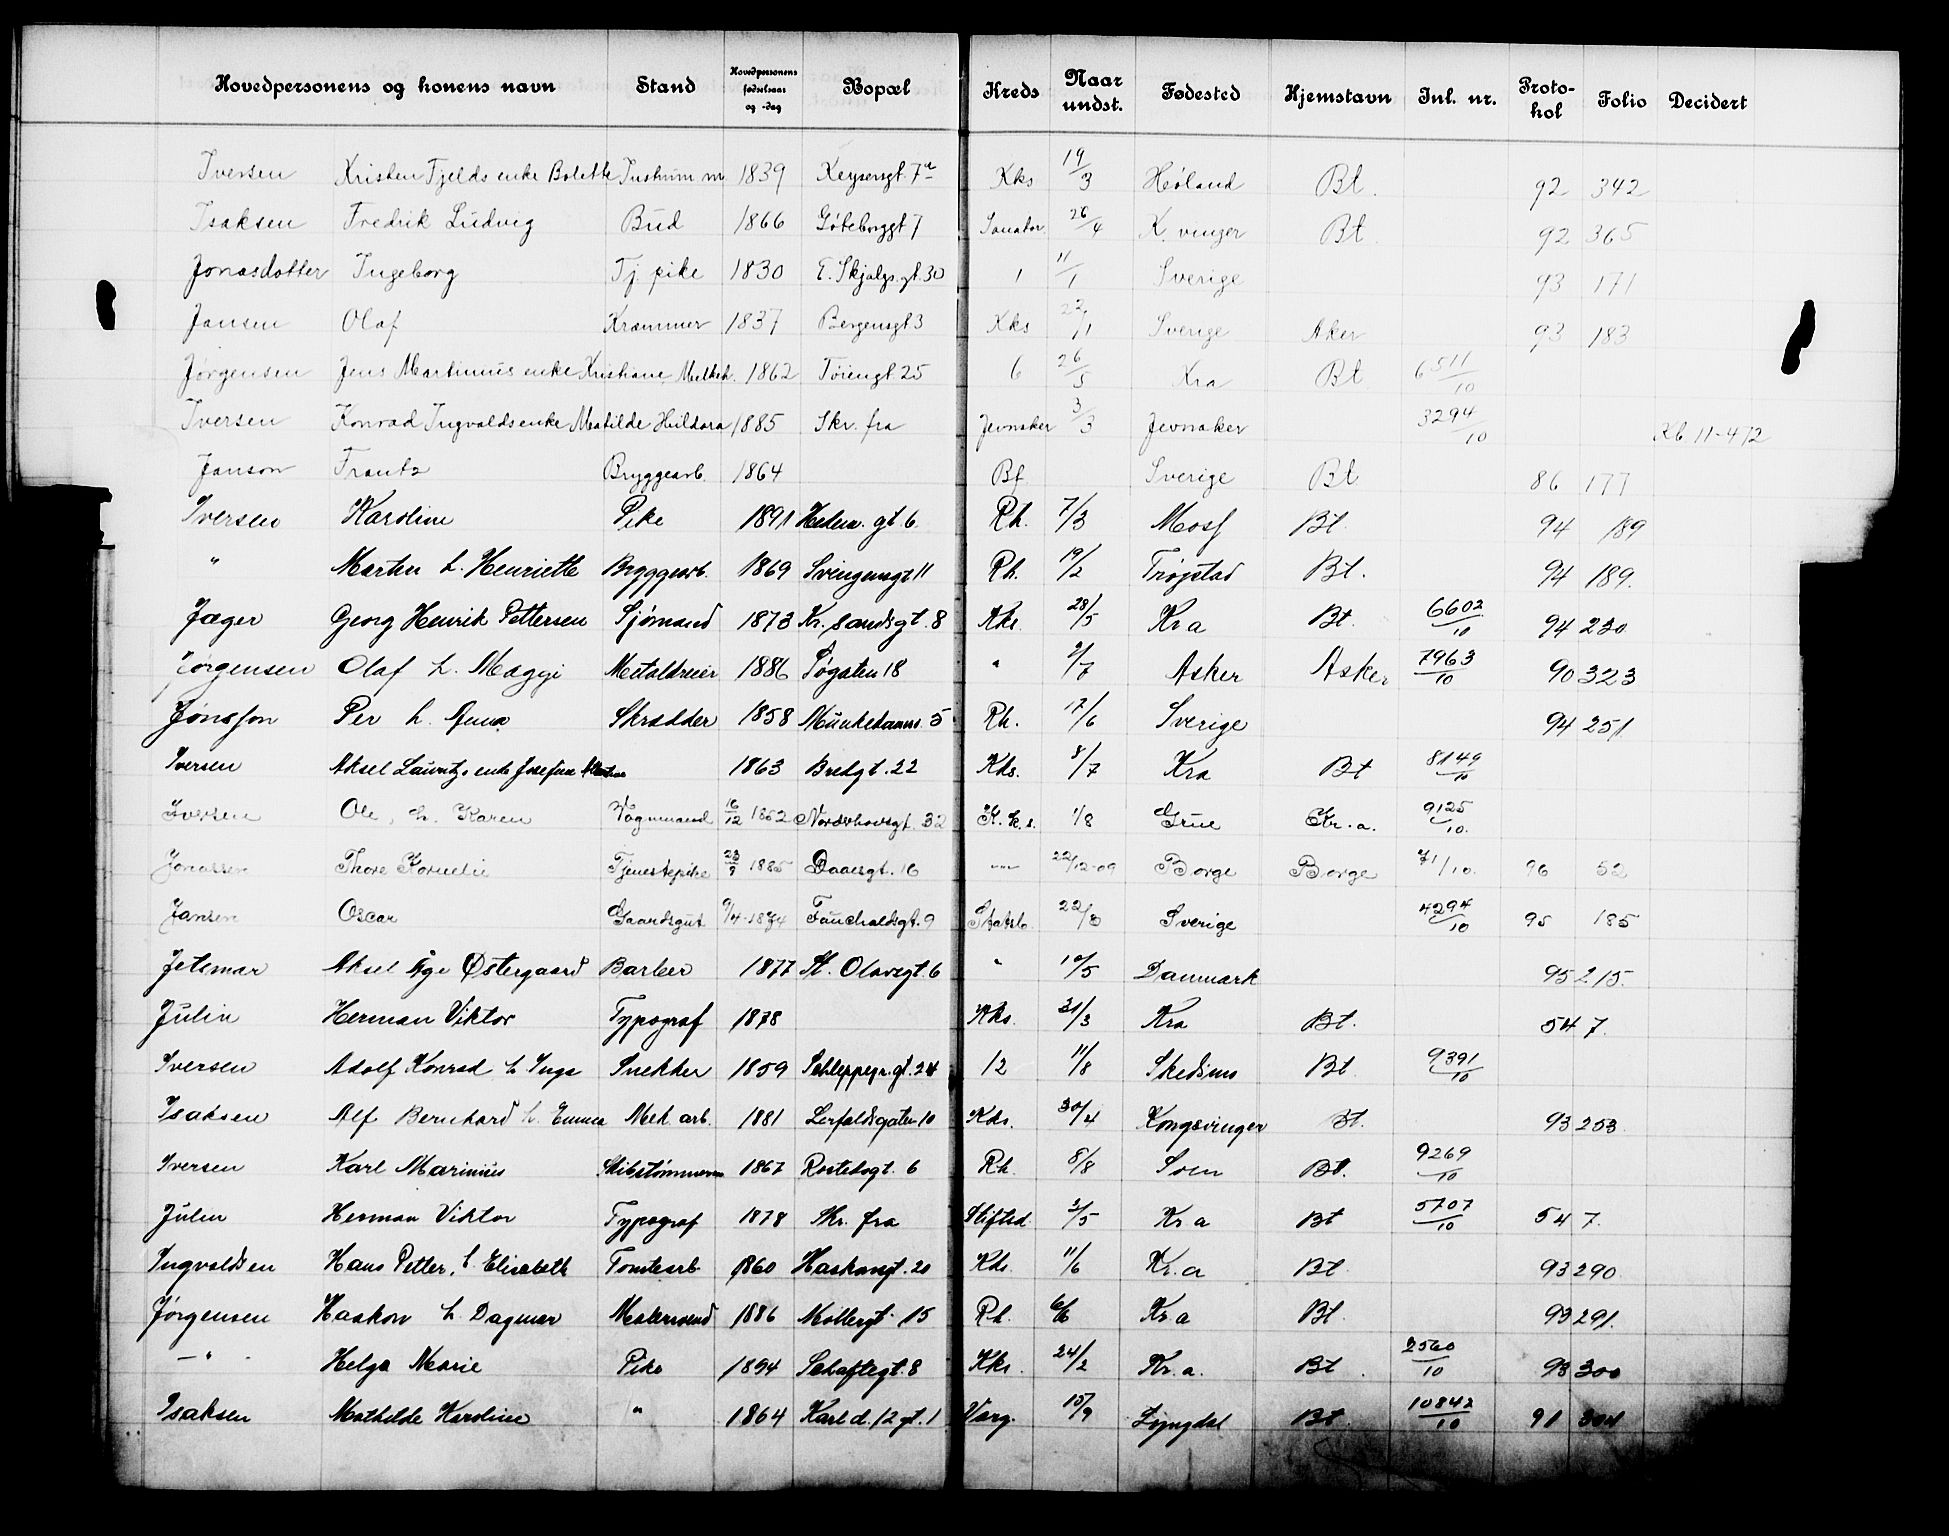 Hovedpersonens og konens navn Stand Hovedpersonens fødselsaar og -dag Bopæl Kreds Naar undst. Fødested Hjemstavn Inl. nr. Protokol Folio Decidert
Iversen Kristen Fjelds enke Bolette Instrum m 1839 Keysersgt. 7a Kks 19/3 Høland Bt. 92 342
Isaksen Fredrik Ludvig Bud 1866 Göteborggt 7 Sanator. 26/4 K.vinger Bt 92 365
Jonasdotter Ingeborg Tj.pike 1830 E. Skjalgs.gt. 30 1 11/1 Sverige 93 171
Jansen Olaf Krammer 1837 Bergensgt 3 Kks 22/1 Sverige Aker 93 183
Jørgensen Jens Martinius enke Kristiane Melkeh. 1862 Tøiengt 25 6 26/5 Kra Bt 6511/10
Iversen Konrad Ingvalds enke Matilde Huldora 1885 Skr. fra Jevnaker 3/3 Jevnaker 3294/10 Kb 11-472
Janson Frantz Bryggearb. 1864 Bf Sverige Bt 86 177
Iversen Karoline Pike 1891 gt. 6 Rh. 7/3 Moss Bt. 94 189
" Martin h. Henriette Bryggearb. 1869 Svingengt 11 Rh. 19/2 Trøgstad Bt. 94 189.
Jæger Georg Henrik Pettersen Sjømand 1873 Kr.sandsgt. 8 Kks. 28/5 Kra Bt. 6602/10 94 230
Jørgensen Olaf h. Maggi Metaldreier 1886 Søgaten 18 " 2/7 Asker Asker 7963/10 90 323
Jonsson Per h. Anna Skrædder 1858 Munkedamsv. 5 Rh. 17/6 Sverige 94 251
Iversen Aksel Lauritz enke Josefine 1863 Bredgt. 22 Kks. 8/7 Kra Bt 8149/10
Iversen Ole, h. Karen Vognmand 16/12 1852 Norderhovsgt. 32 K.k.s. 1/8 Grue Kr.a. 9125/10.
Jonassen Thore Kornelie Tjenestepike 23/9 1885 Daaesgt. 16 -"- 22/12-09 Borge Borge 71/10. 96 52
Jansen Oscar Gaardsgut 9/4-1874 Fauchaldsgt. 9 Statsb. 22/3 Sverige 4294/10 95 185
Jetsmar Aksel Age Østergaard Barber 1877 St. Olavsgt 6 " 10/5 Danmark 95 215.
Julin Herman Viktor Typograf 1878 Kks. 31/3 Kra Bt. 54 7.
Iversen Adolf Konrad h Inga Snekker 1859 Schleppegr.gt. 24 12 11/8 Skedsmo Bt. 9391/10
Isaksen Alf Bernhard h. Emma Mek. arb. 1881 Lerfaldsgaten 10 Kks. 30/4 Kongsvinger Bt. 93 253
Iversen Karl Marinius Skibstømmerm 1867 Rostedsgt. 6 Rh. 8/8 Soon Bt. 9269/10
Julin Herman Viktor Typograf 1878 Skr. fra Stiftsd. 3/5 Kra Bt 5707/10 54 7.
Ingvaldsen Hans Petter, h. Elisabeth Tomtearb 1860 Haakonsgt. 20 Kks. 11/6 Kr.a Bt. 93 290
Jørgensen Haakon h. Dagmar Malersvend 1886 Møllergt. 15 Rh. 6/6 Kr.a Bt. 93 291.
-"- Helga Marie Pike 1894 Schaftegt. 8 Kks. 24/2 Kr.a. Bt. 2560/10 93 300
Isaksen Mathilde Karoline " 1864 Karl d. 12 gt. 1 Varg. 15/9 Lyngdal Bt. 10842/10 91 304